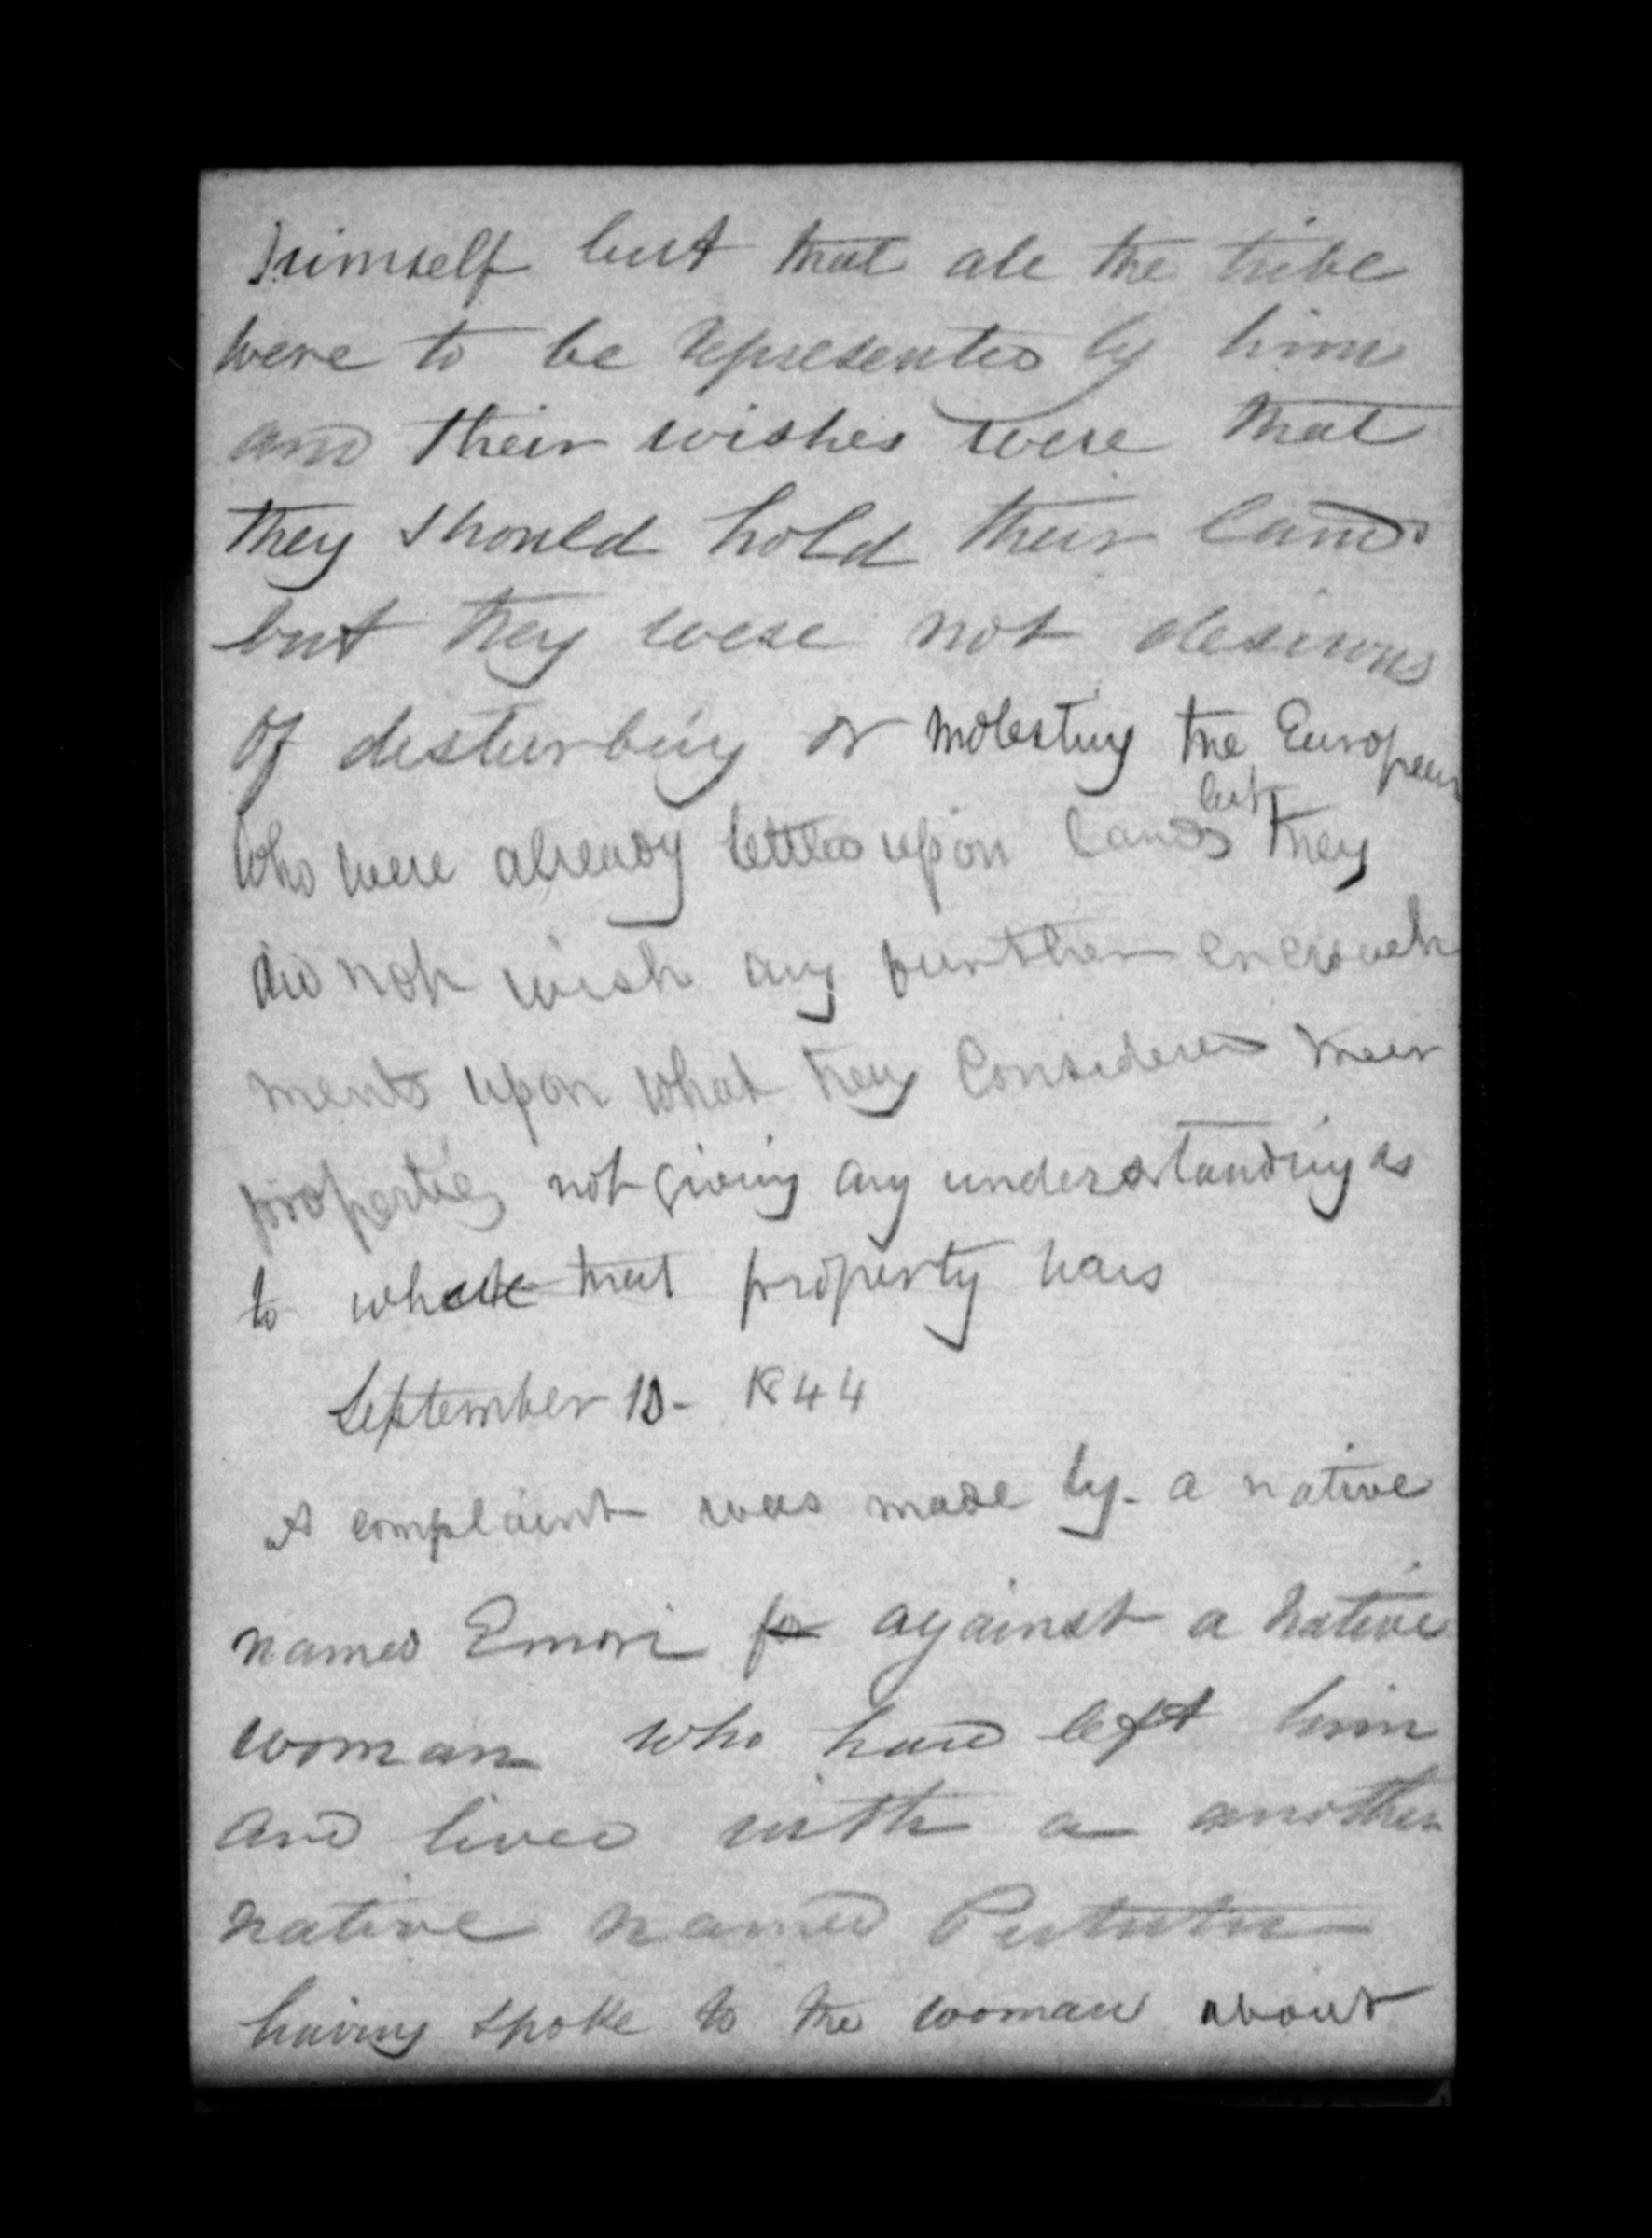 himself but that all the tribe
were to be represented by him
and their wishes were that
they should hold their lands
but they were not desirous
of disturbing or molesting the European
but
who were already settled upon lands they
did not wish any further encroach
ments upon what they considered their
properties not giving any understanding as
to what that property was
September 10 - 1844
A complaint was made by - a native
named Emori for against a native
woman who had left him
and lived with a another
native named Pututu
having spoke to the woman about